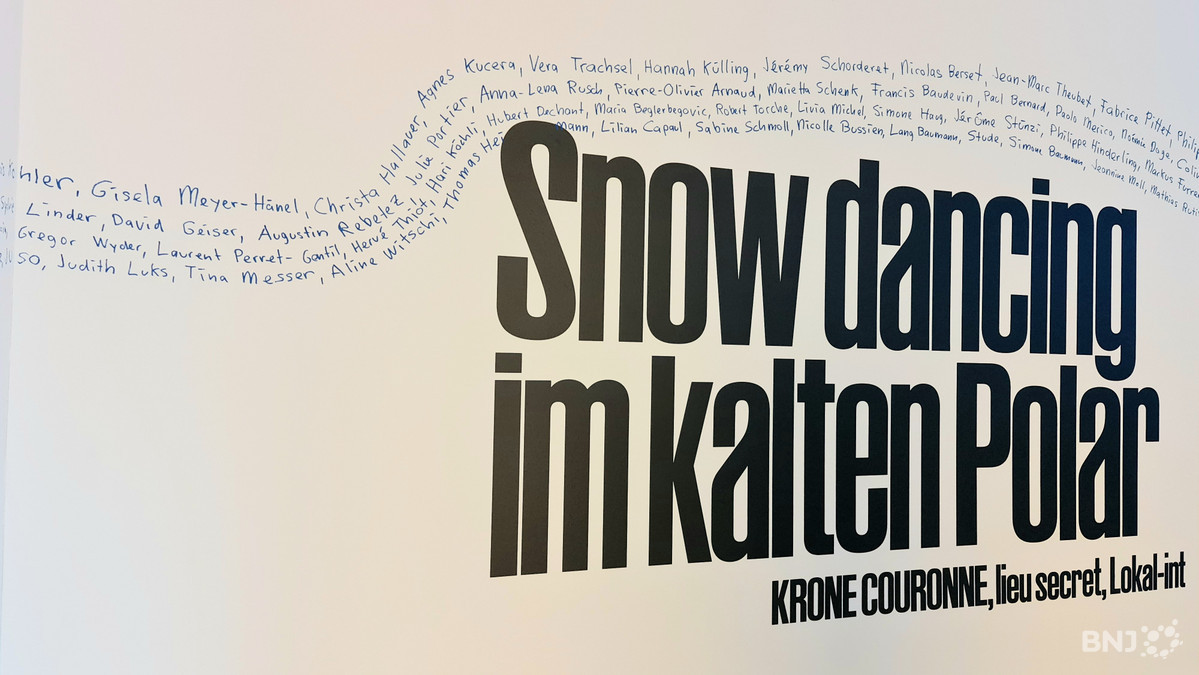 hler, Gisela Meyer-Hänel, Christa Hallauer, Agnes Kucera, Vera Trachsel, Hannah Külling, Jérémy Schorderet, Nicolas Berset, Jean-Marc Theubet, Fabrice Pittet,
Linder, David Geiser, Augustin Rebetez, Julie Portier, Anna-Lena Rusch, Pierre-Olivier Arnaud, Marietta Schenk, Francis Baudevin, Paul Bernard, Paolo Merico, Noémie Doge,
Gregor Wyder, Laurent Perret-Gentil, Hervé Thiot, Hari Köchli, Hubert Dechant, Maria Beglerbegovic, Robert Torche, Livia Michel, Simone Haug, Jérôme Stünzi, Philippe Hinderling, Markus Furrer
so, Judith Luks, Tina Messer, Aline Witschi, Thomas mann, Lilian Capaul, Sabine Schmoll, Nicolle Bussien, Lang Baumann, Stude, Simone Baumann, Jeannine Moll, Mathias
Snow dancing
im kalten Polar
KRONE COURONNE, lieu secret, Lokal-int
BNJ